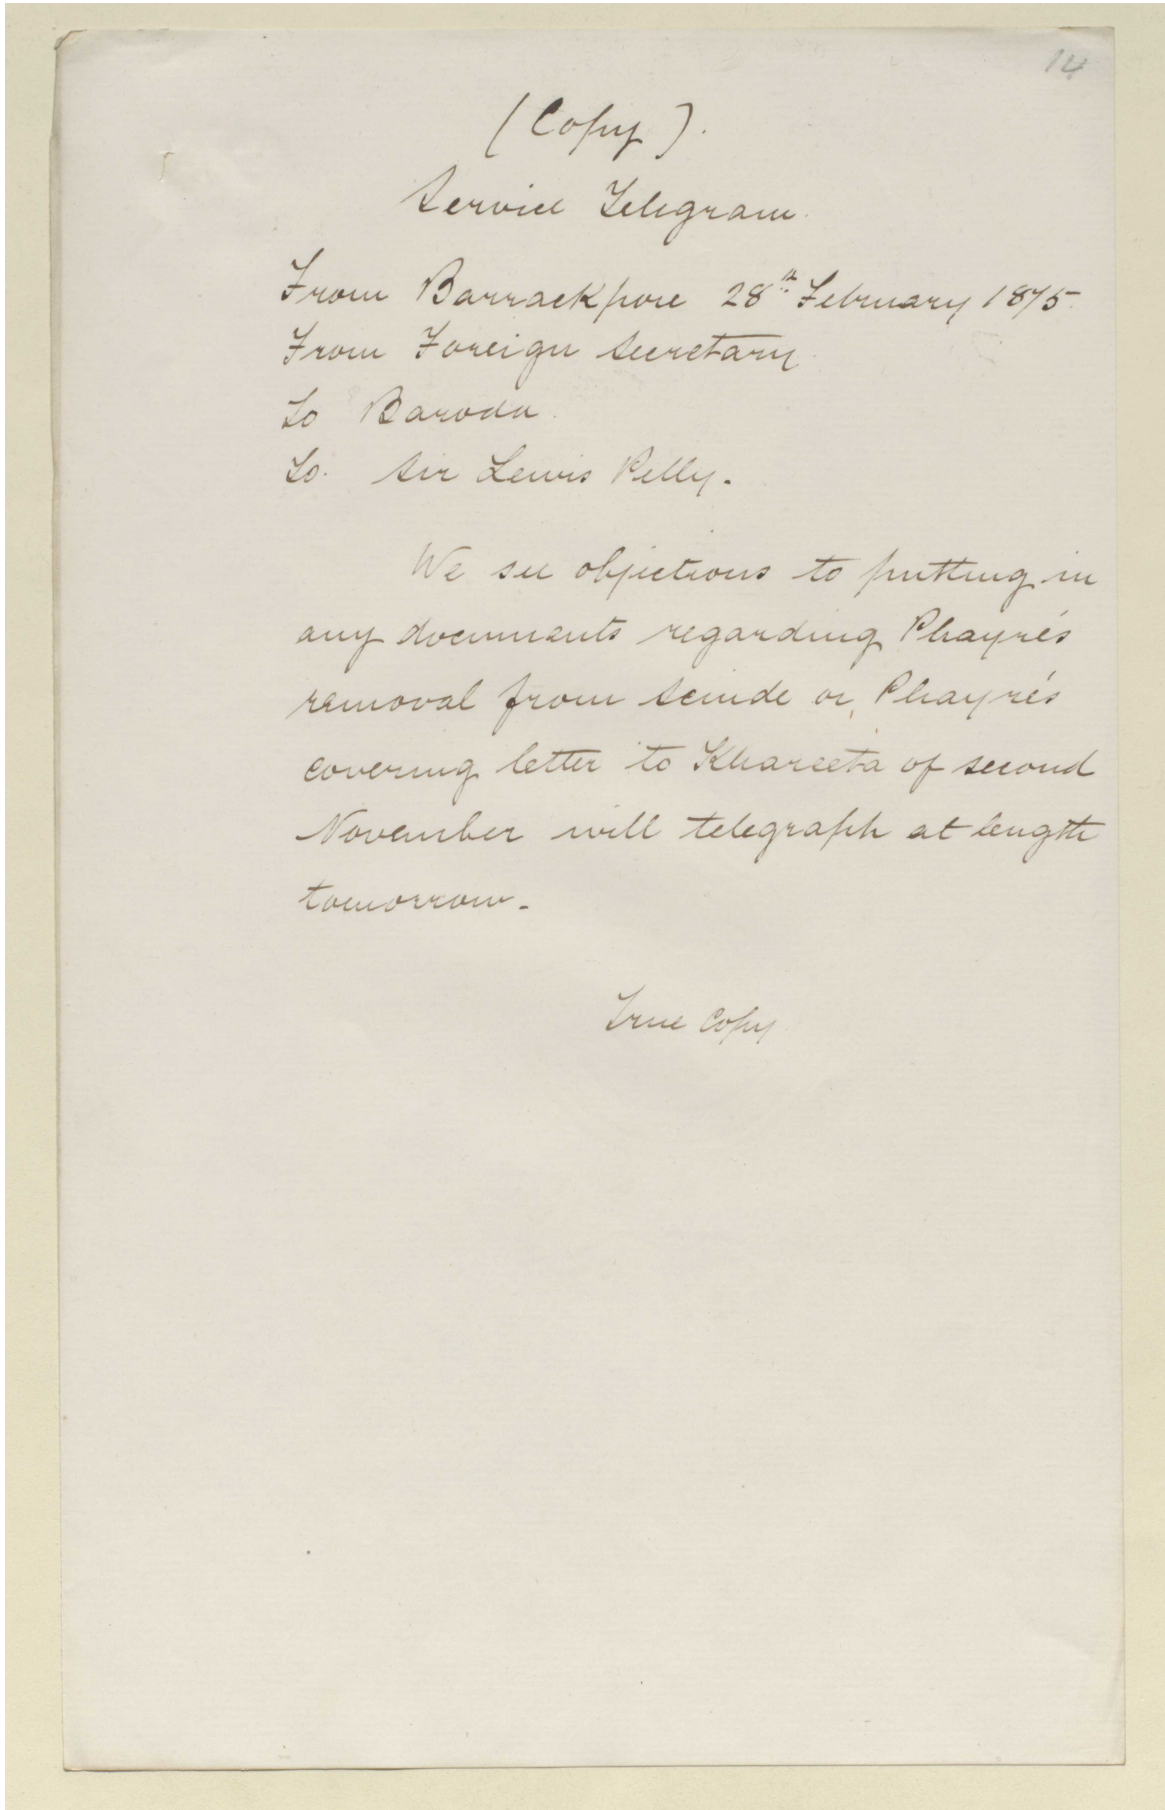 14
(Copy).
Service Telegram.
From Barrackpore 28th February 1875.
From Foreign Secretary.
To Baroda.
To. Sir Lewis Pelly.
We see objections to putting in
any documents regarding Phayre's
removal from Scinde or, Phayre's
covering letter to Khareeta of second
November will telegraph at length
tomorrow.
True Copy